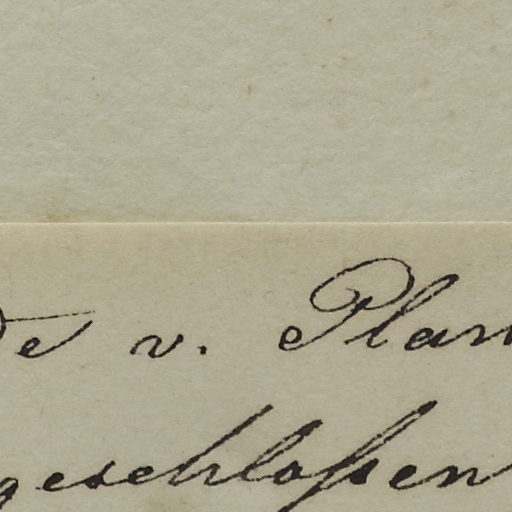 v. Plan
geschloßen